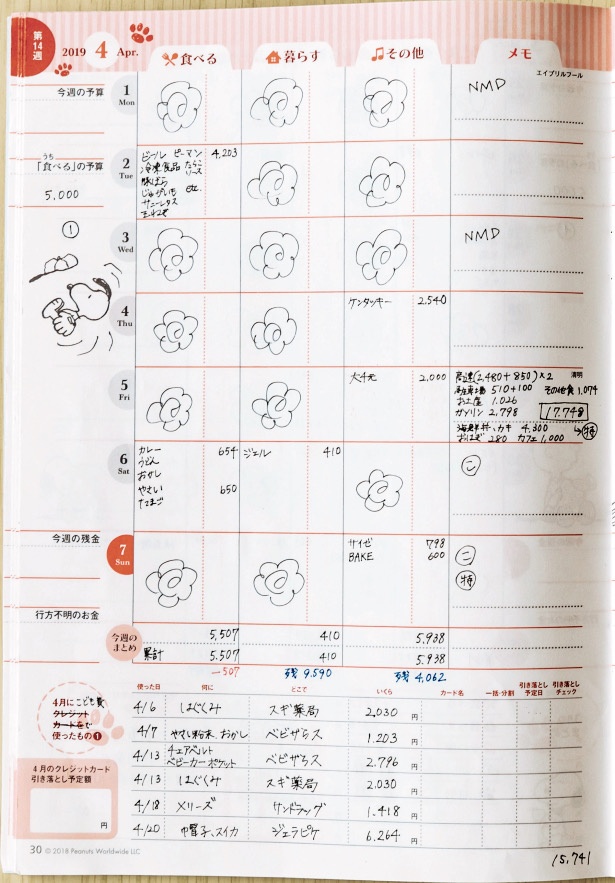 第14週
2019 4 Apr.
食べる 暮らす その他 メモ
今週の予算
1 Mon NMD エイプリルフール
「食べる」の予算
うち
5,000
2 Tue
ビール ピーマン 4,203
冷凍食品 たらこソース
豚ばら
じゃがいも etc.
サニーレタス
たまねぎ
①
3 Wed NMD
4 Thu ケンタッキー 2,540
5 Fri 2,000 清明
高速(2,480+850)×2
510+100 その他食 1,074
お土産 1,026
ガソリン 2,798 17,748
海鮮丼、カキ 4,300 →特
おはぎ 280 カフェ 1,000
6 Sat
カレー 654 ジェル 410 こ
うどん
おかし
やさい 650
たまご
今週の残金
7 Sun サイゼ 798 こ
BAKE 600 特
行方不明のお金
今週のまとめ 5,507 410 5,938
累計 5,507 410 5,938
-507 残 9,590 残 4,062
使った日 何に どこで いくら カード名 一括・分割 引き落とし予定日 引き落としチェック
4月にこども費
クレジット
カードをで
使ったもの❶
4/6 はぐくみ スギ薬局 2,030 円
4/7 やさい粉末、おかし ベビザらス 1,203 円
4/13 チェアベルト ベビーカーポケット ベビザらス 2,796 円
4/13 はぐくみ スギ薬局 2,030 円
4/18 メリーズ サンドラッグ 1,418 円
4/20 帽子、スイカ ジェラピケ 6,264 円
4月のクレジットカード
引き落とし予定額
円
30 © 2018 Peanuts Worldwide LLC
15,741